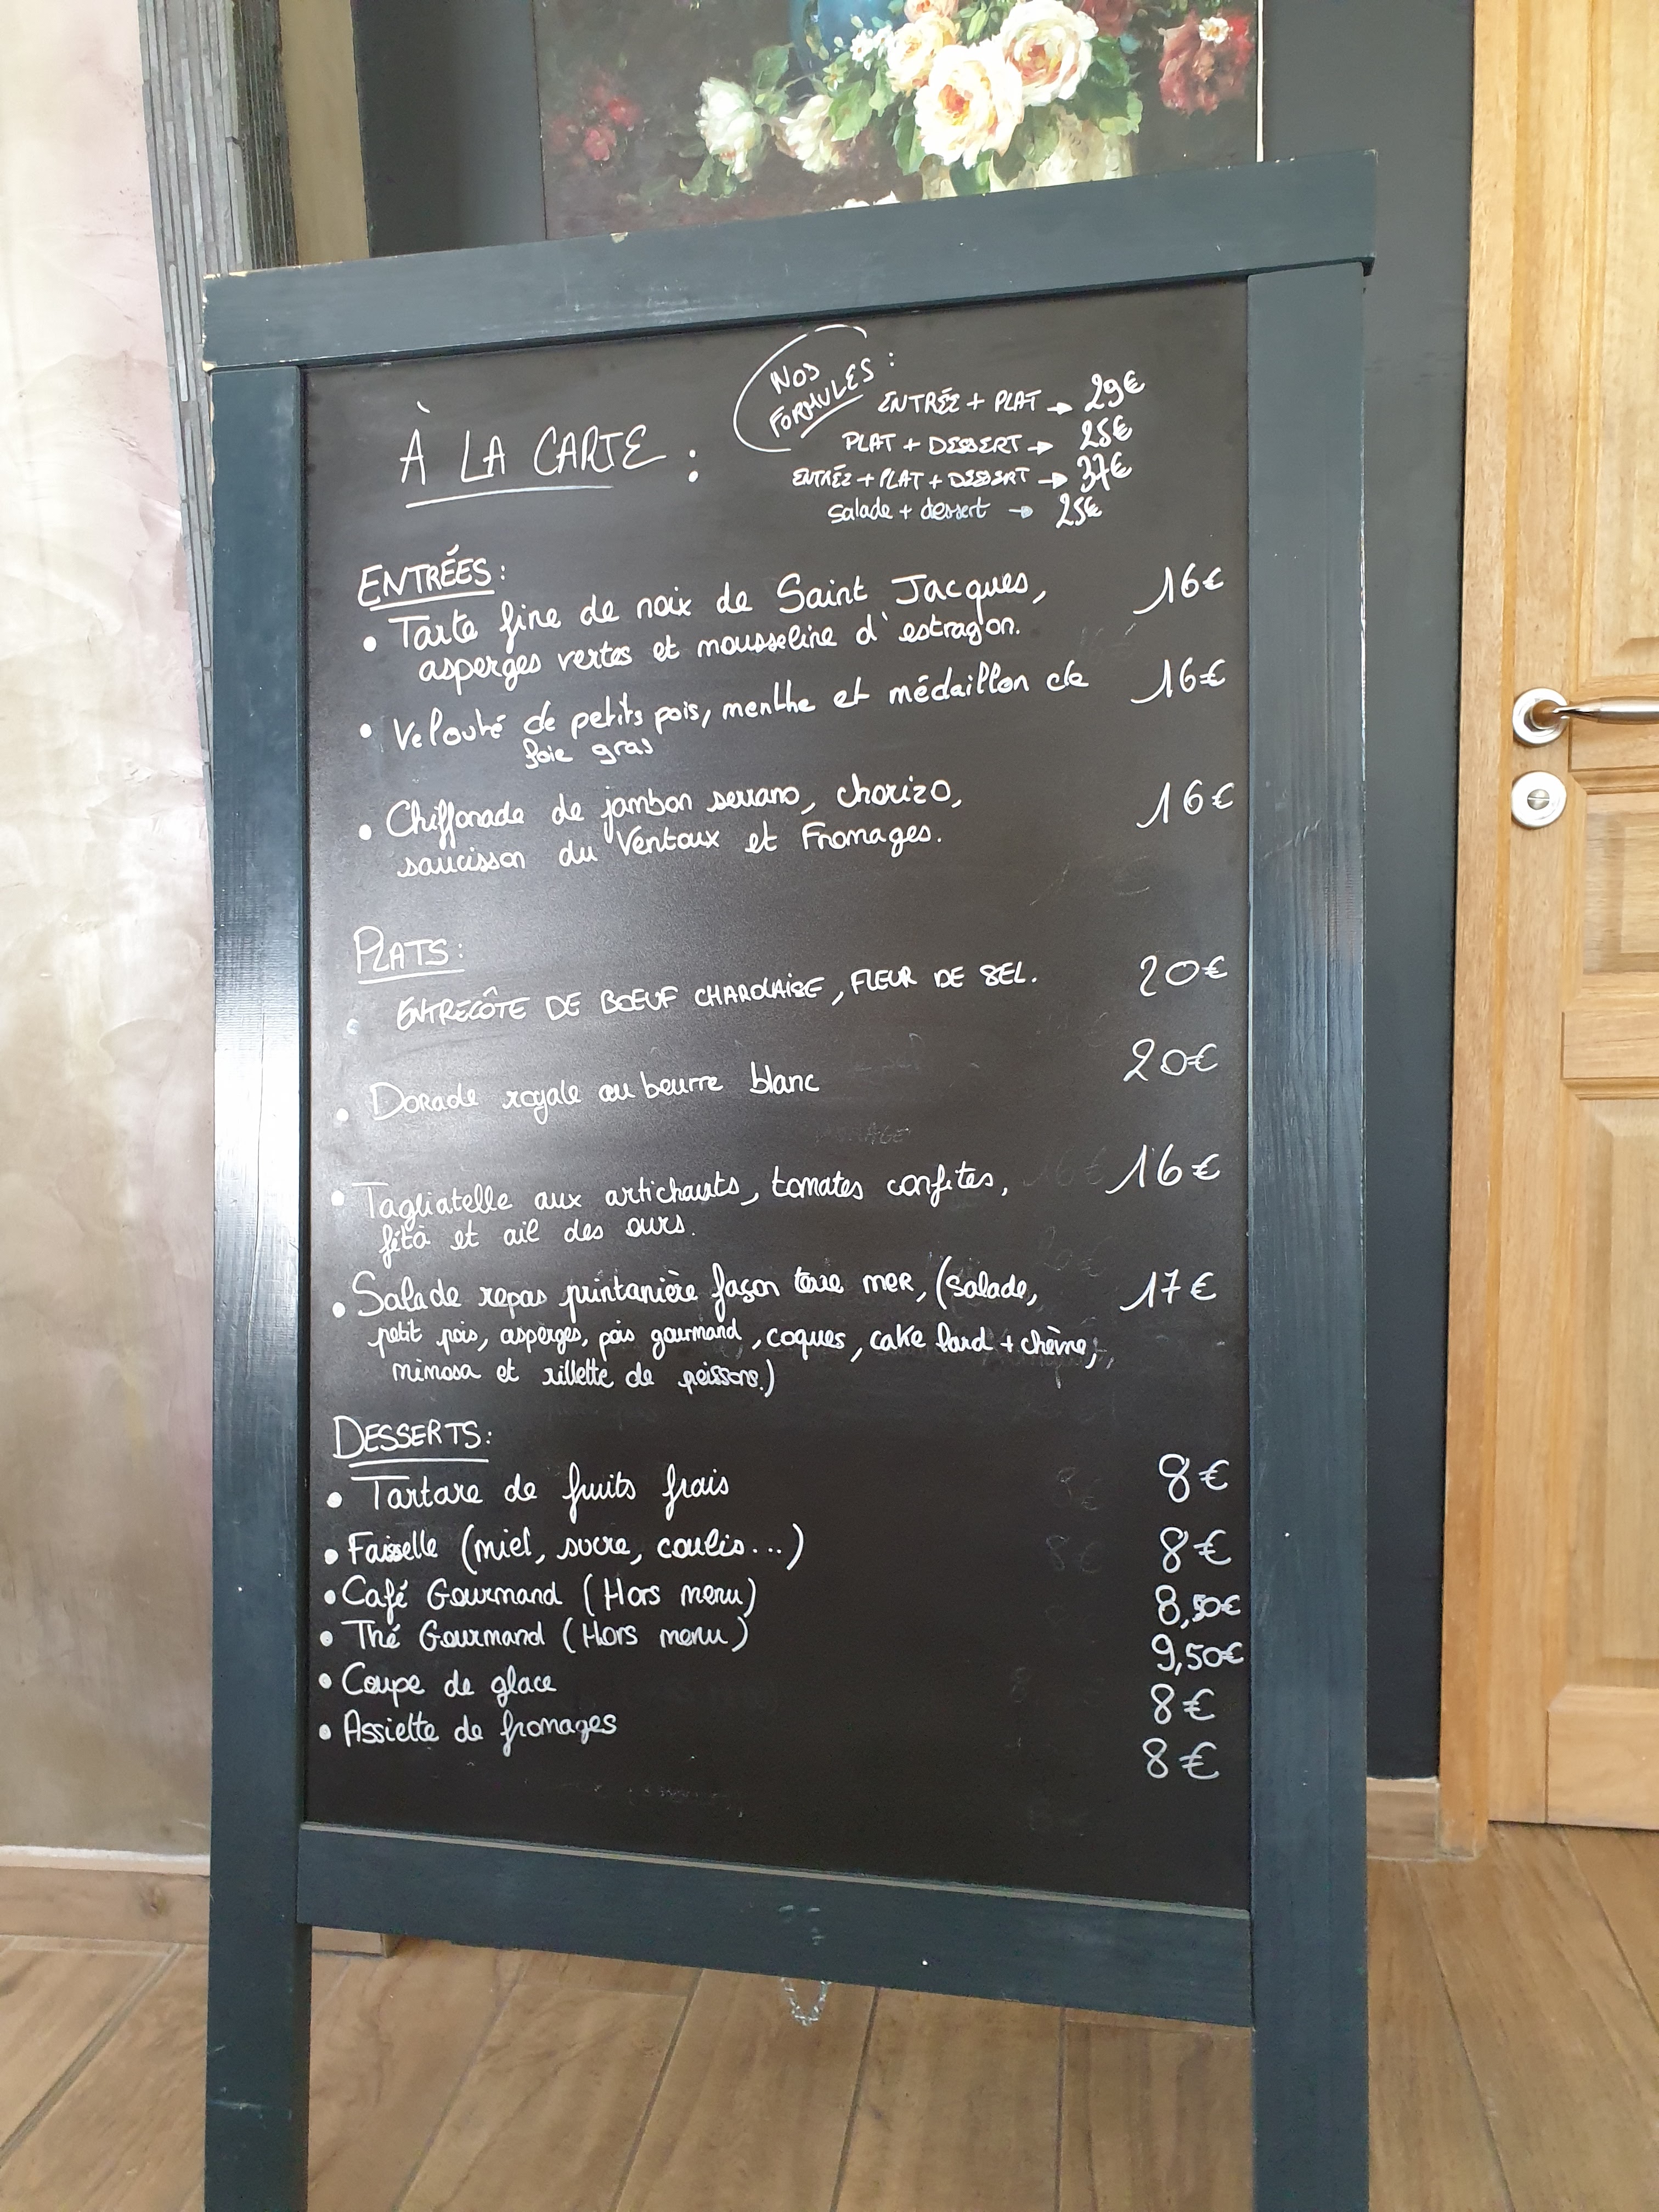 À LA CARTE :
NOS
FORMULES :
ENTRÉE + PLAT → 29€
PLAT + DESSERT → 25€
ENTRÉE + PLAT + DESSERT → 37€
salade + dessert → 25€
ENTRÉES :
• Tarte fine de noix de Saint Jacques, 16€
asperges vertes et mousseline d'estragon.
• Velouté de petits pois, menthe et médaillon de 16€
foie gras
• Chiffonade de jambon serrano, chorizo, 16€
saucisson du Ventoux et Fromages.
PLATS :
• ENTRECÔTE DE BOEUF CHAROLAISE, FLEUR DE SEL. 20€
• Dorade royale au beurre blanc 20€
• Tagliatelle aux artichauts, tomates confites, 16€
féta et ail des ours.
• Salade repas printanière façon terre mer, (Salade, 17€
petit pois, asperges, pois gourmand, coques, cake lard + chèvre,
mimosa et rillette de poissons.)
DESSERTS :
• Tartare de fruits frais 8€
• Faisselle (miel, sucre, coulis...) 8€
• Café Gourmand (Hors menu) 8,50€
• Thé Gourmand (Hors menu) 9,50€
• Coupe de glace 8€
• Assiette de fromages 8€